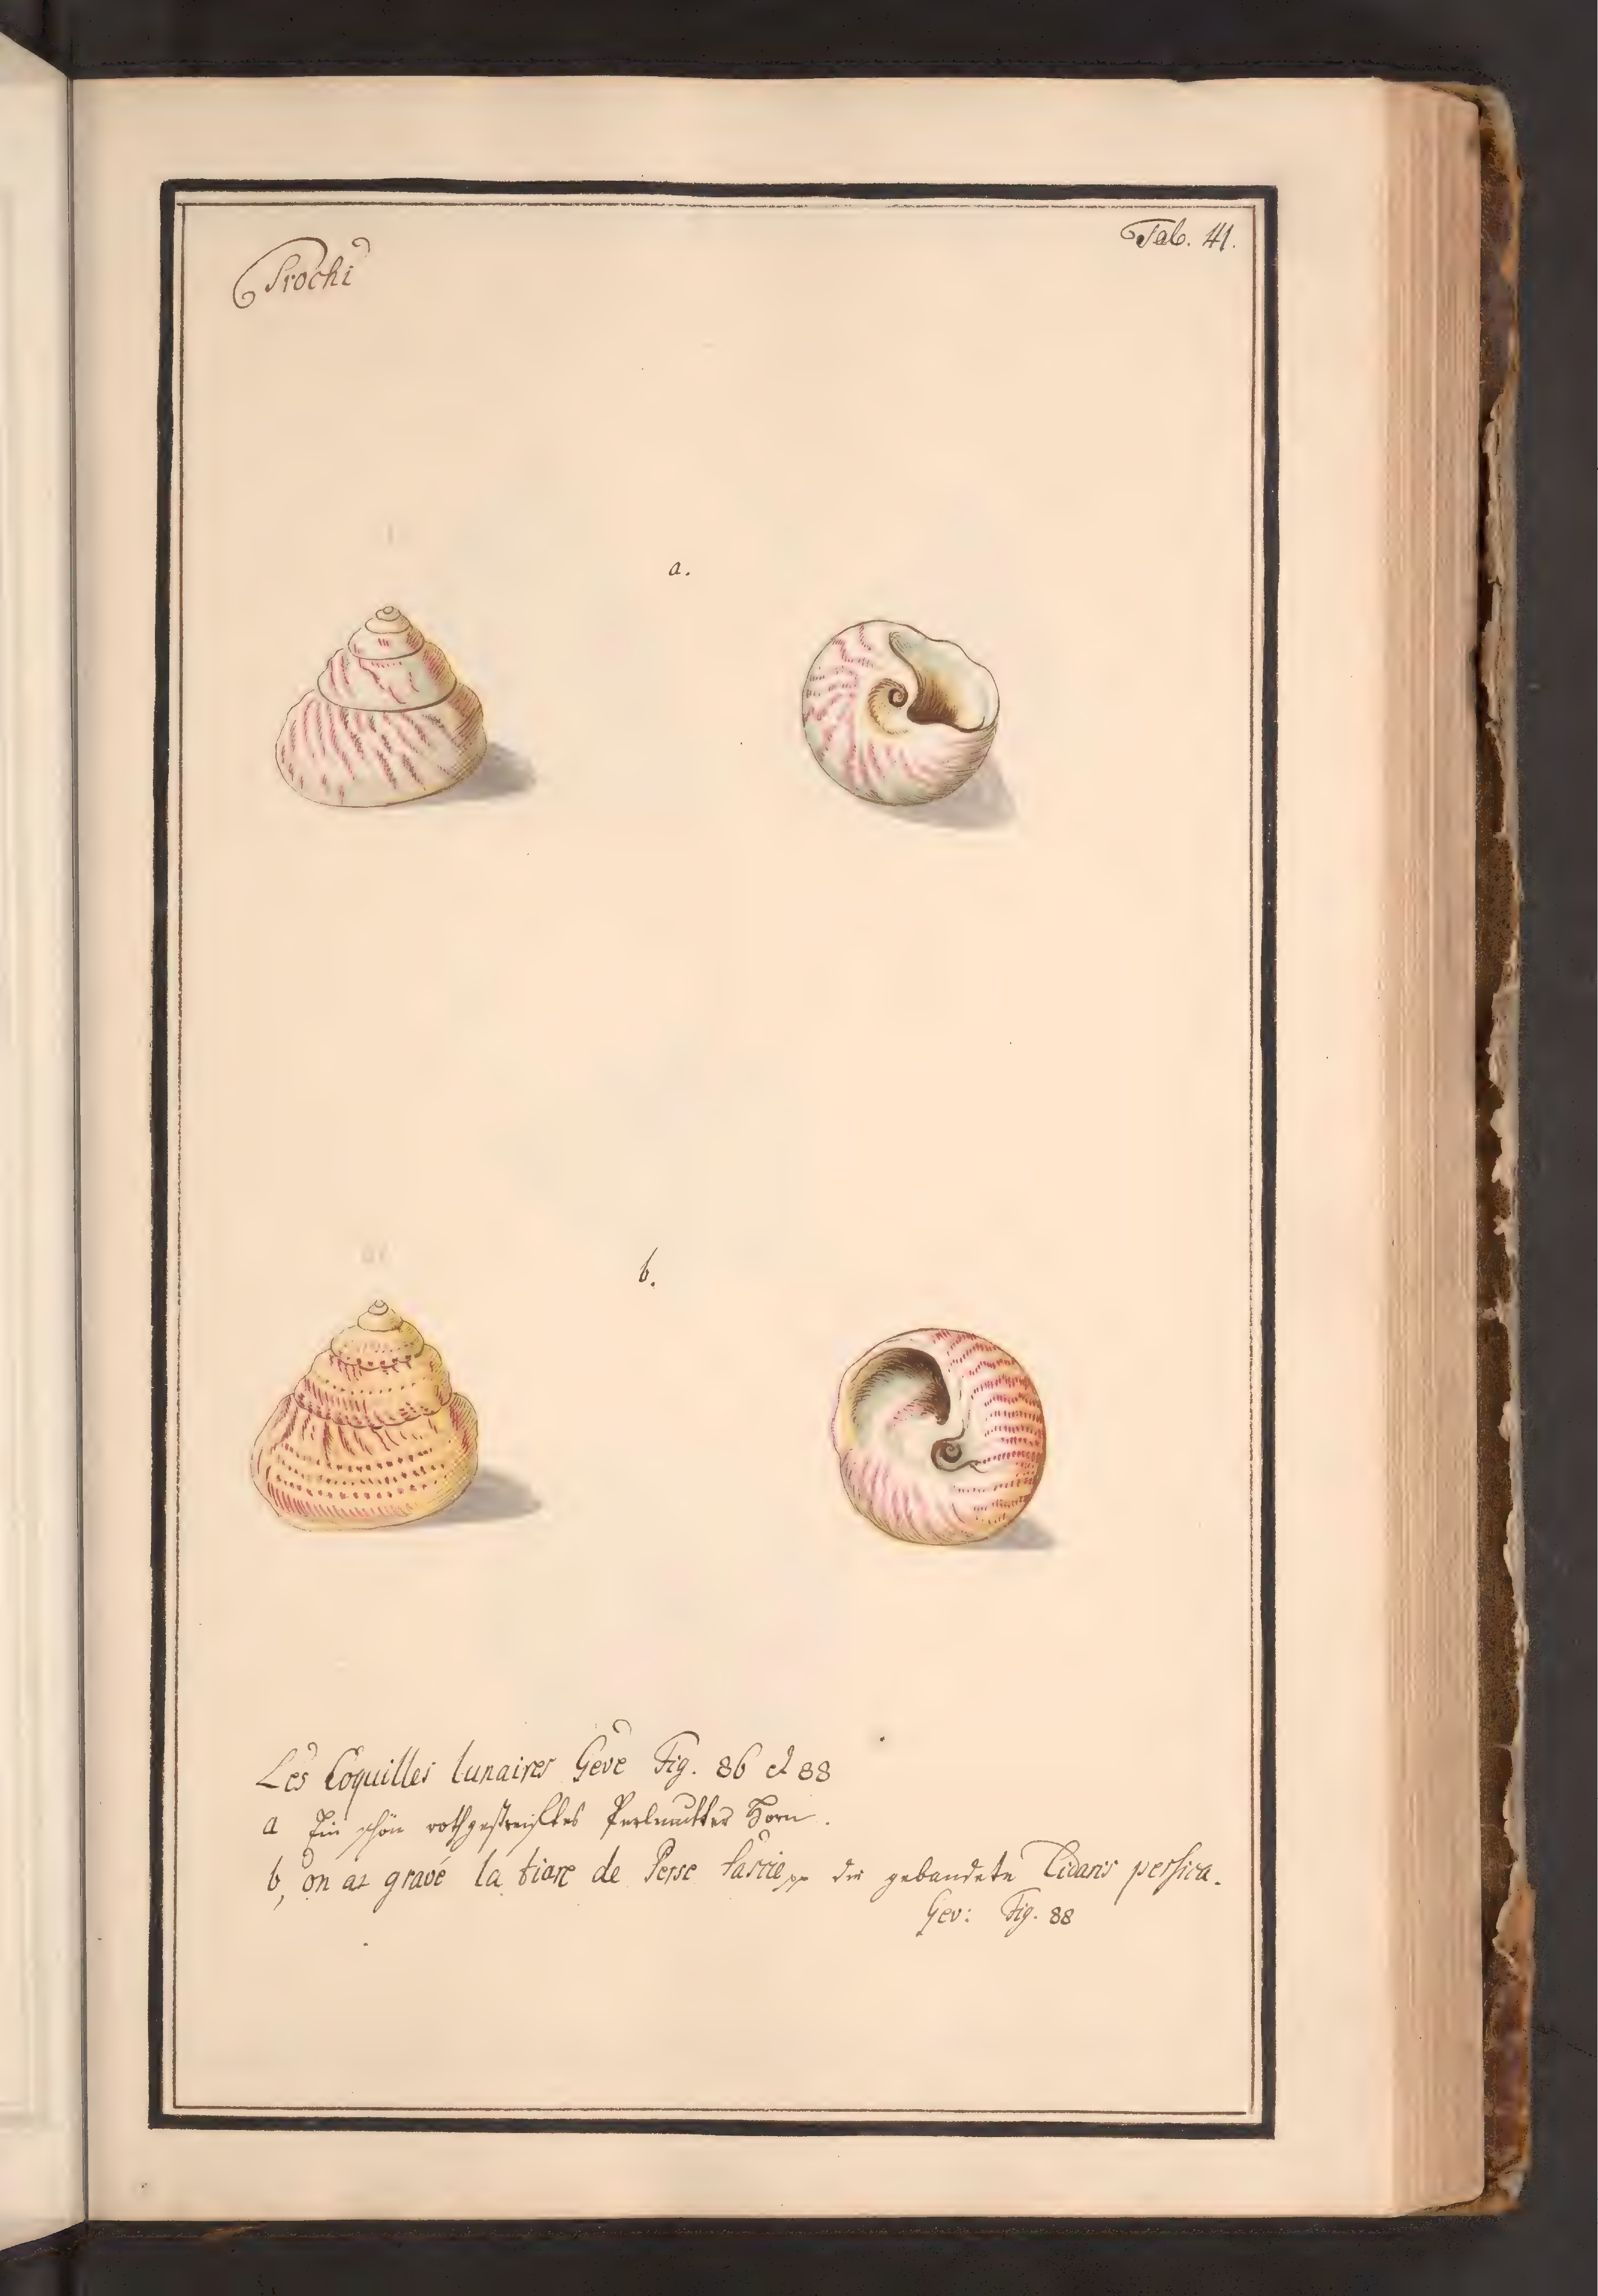 Trochi
Tab. 41.
a.
b.
Les Coquilles lunaires Geve Fig. 86 et 88
a Ein schön rothgestreiftes Perlmutter Horn.
b, on a gravé la tiare de Perse fascie die gebandete Cidaris persica.
Gev: Fig. 88